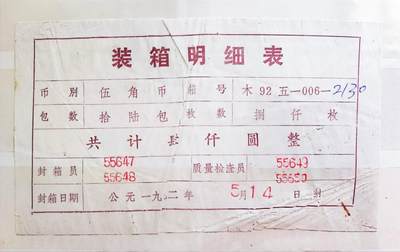 装箱明细表
币别 伍角币 箱号 木92五-006-2130
包数 拾陆包 枚数 捌仟枚
共计肆仟圆整
封箱员 55647 55648 质量检查员 55649 55650
封箱日期 公元一九九二年 5月14日封